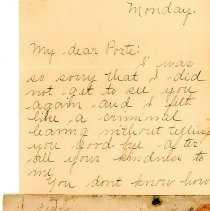 Monday.
My dear Porte:
I was
so sorry that I did
not get to see you
again and I felt
like a criminal
leaving without telling
you good bye after
all your kindness to
me.
You don't know how